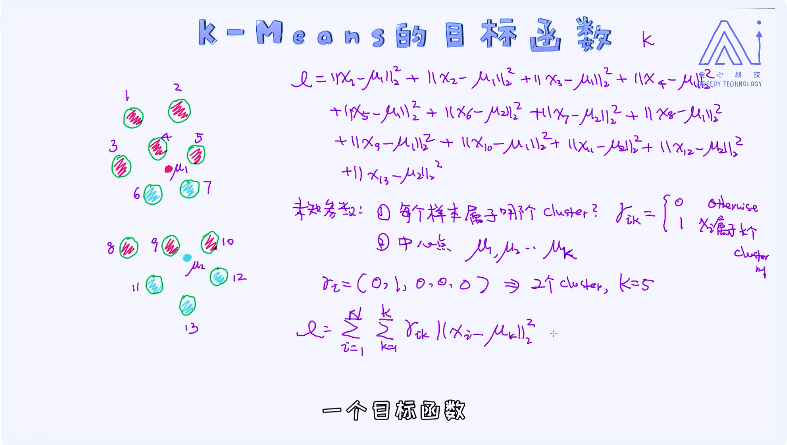 K-Means的目标函数
K
贪心科技
GREEDY TECHNOLOGY
1
2
3
4
5
μ₁
6
7
8
9
10
μ₂
11
12
13
ℓ = ||x₁-μ₁||₂² + ||x₂-μ₁||₂² + ||x₃-μ₁||₂² + ||x₄-μ₁||₂²
+ ||x₅-μ₁||₂² + ||x₆-μ₂||₂² + ||x₇-μ₂||₂² + ||x₈-μ₁||₂²
+ ||x₉-μ₁||₂² + ||x₁₀-μ₁||₂² + ||x₁₁-μ₂||₂² + ||x₁₂-μ₂||₂²
+ ||x₁₃-μ₂||₂²
未知参数: ① 每个样本属于哪个 cluster? γᵢₖ = { 0 otherwise
1 xᵢ属于k个
cluster
时
② 中心点 μ₁, μ₂ ... μₖ
γᵢ = (0, 1, 0, 0, 0) ⇒ 2个cluster, K=5
ℓ = Σᵢ₌₁ᴺ Σₖ₌₁ᴷ γᵢₖ ||xᵢ-μₖ||₂²
一个目标函数